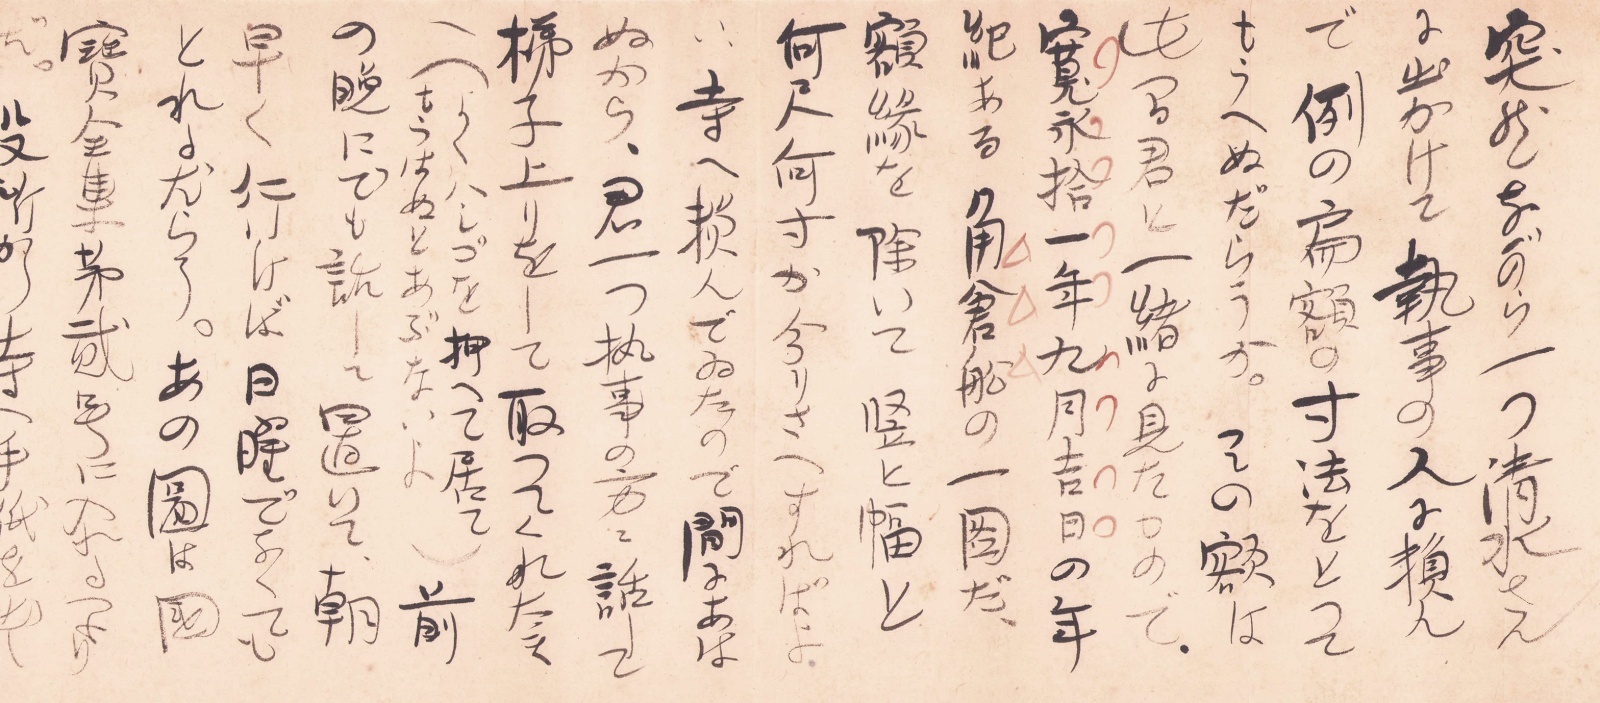 突然ながら一つ清水さん
に出かけて執事の人に頼ん
で例の扁額の寸法をとって
もらへぬだらうか。その額は
いつか君と一緒に見たもので。
寛永拾一年九月吉日の年
紀ある角倉船の一図だ、
額縁を除いて竪と幅と
何尺何寸か分りさへすればよ
い、寺へ頼んでゐたので間にあは
ぬから、君一つ執事の方に話して
梯子上りをして取つてくれたまへ
(よくハシゴを押へて居て
もらはぬとあぶないよ)前
の晩にでも話して置いて、朝
早く行けば日曜でなくても
とれるだらう。あの圖は国
宝全集第貳号に入れるつもり
だ。